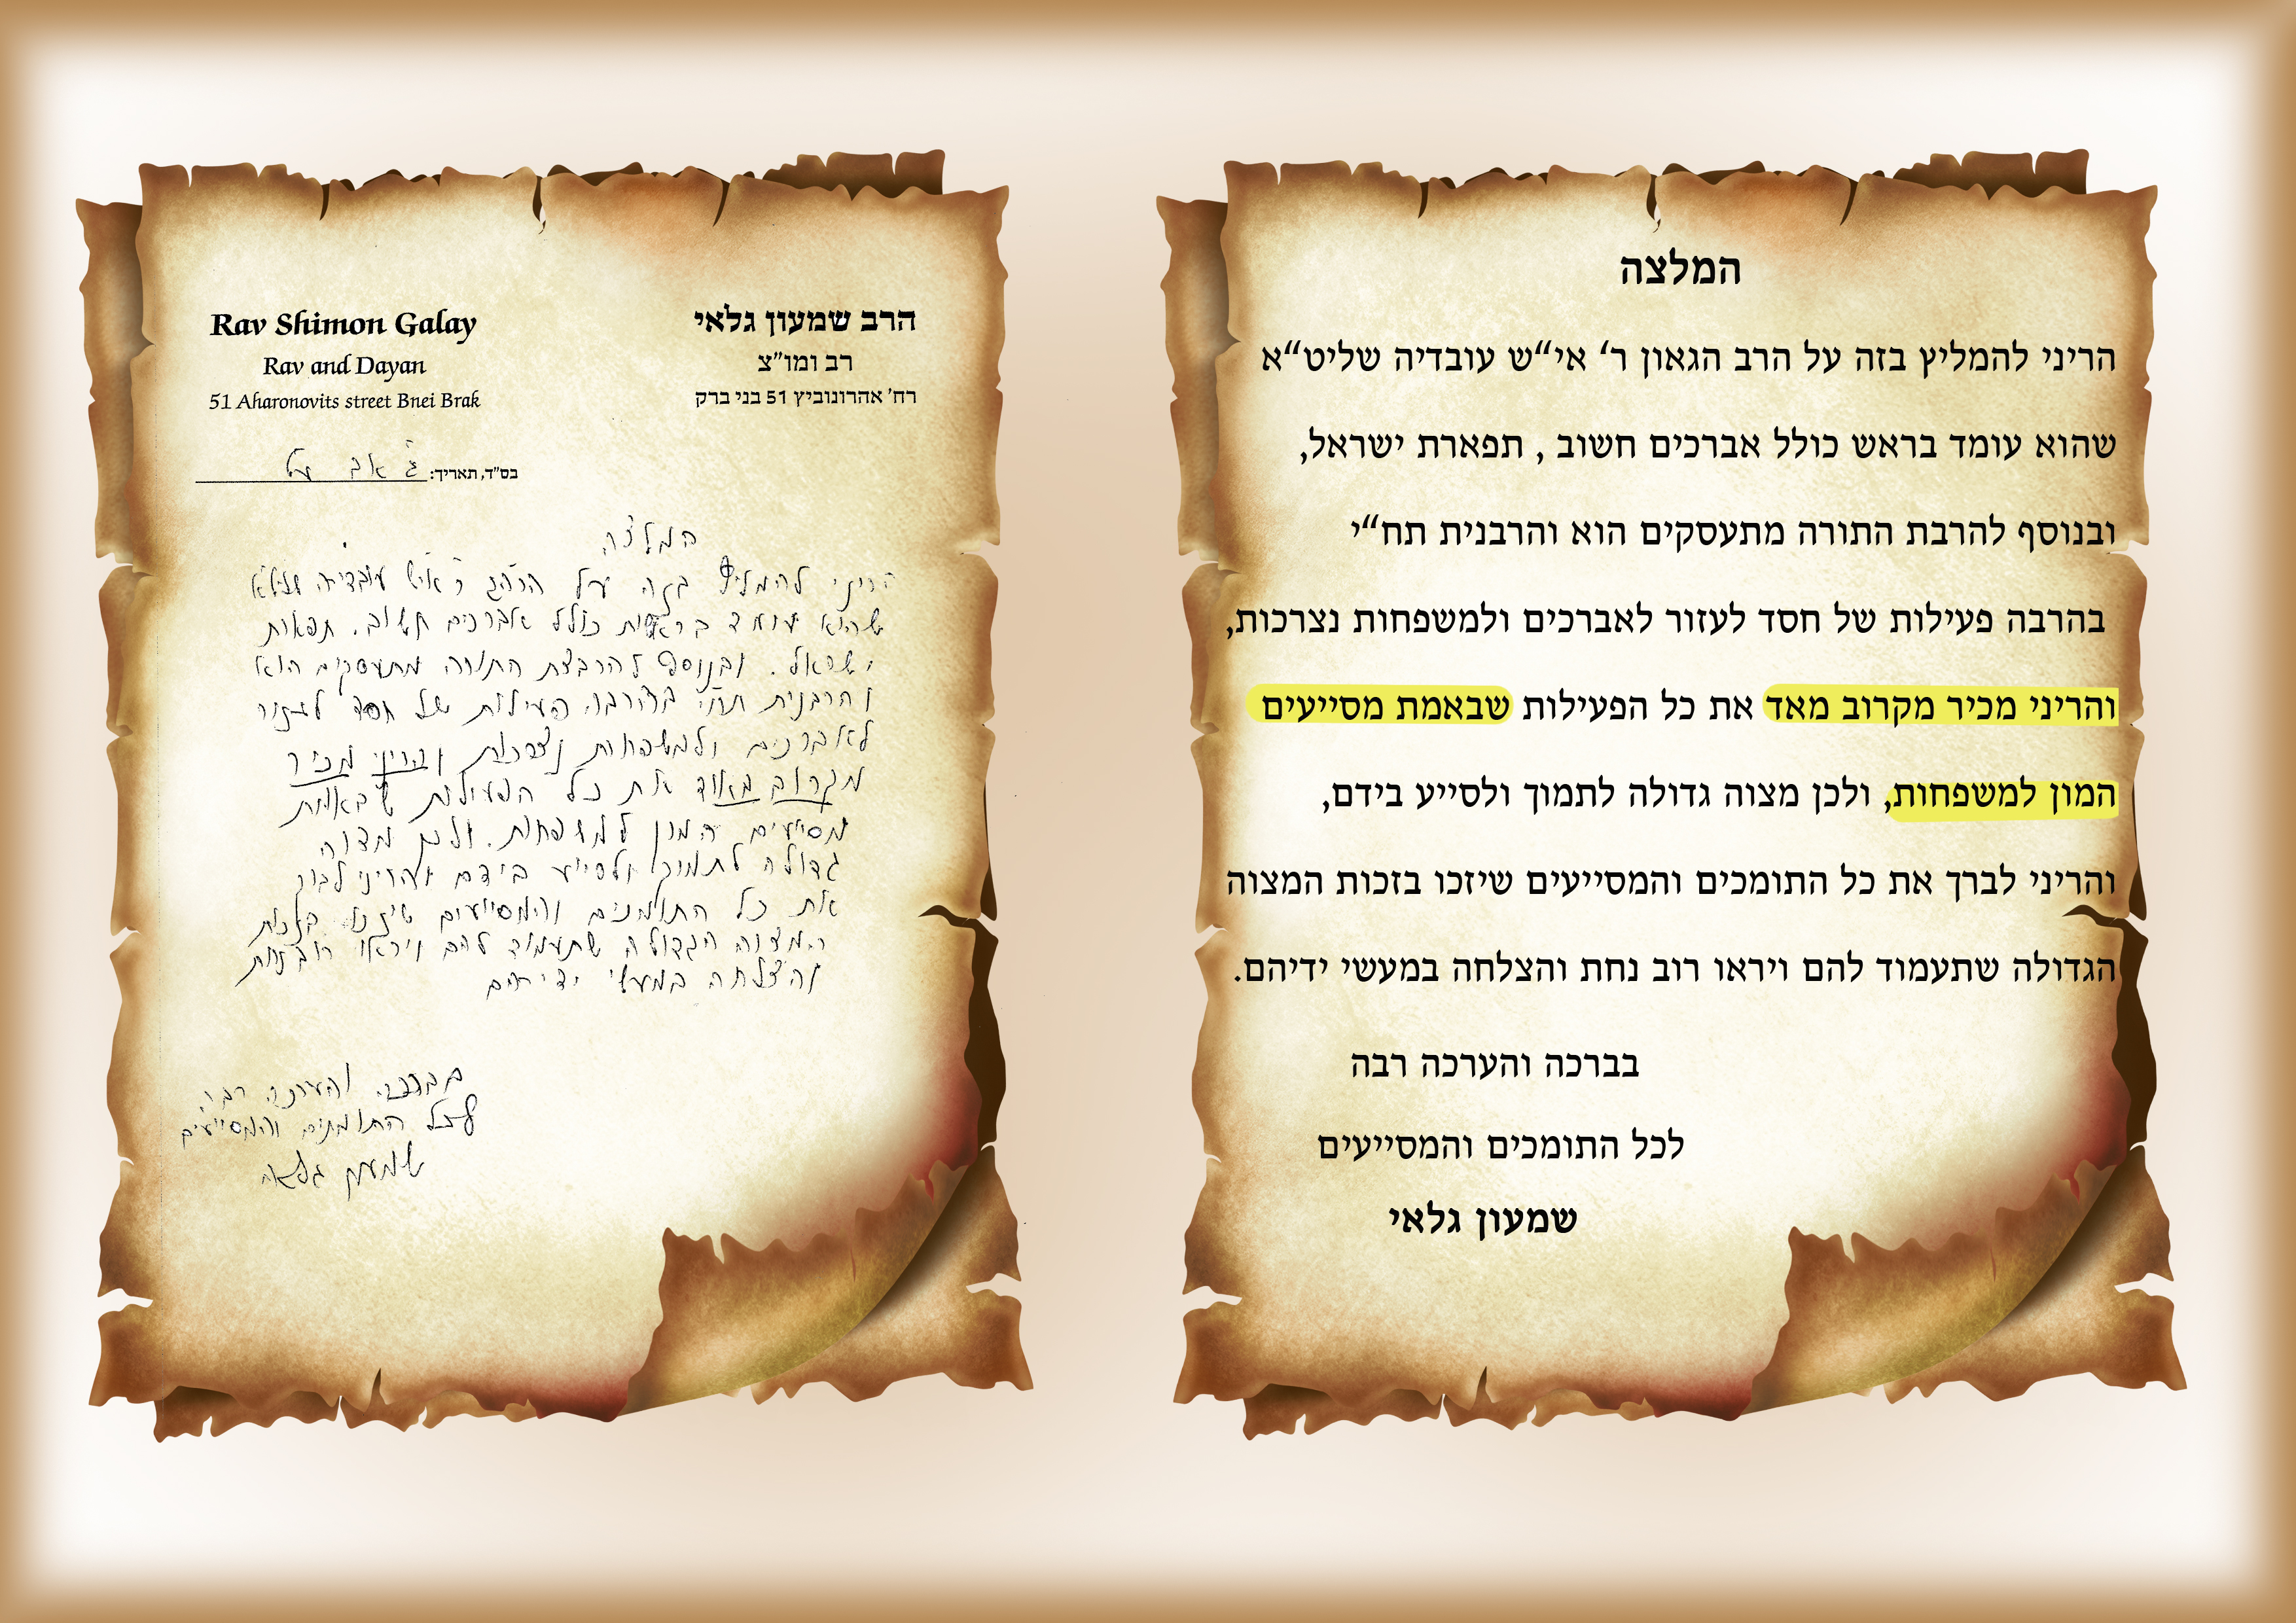 Rav Shimon Galay
Rav and Dayan
51 Aharonovits street Bnei Brak
הרב שמעון גלאי
רב ומו"צ
רח' אהרונוביץ 51 בני ברק
בס"ד, תאריך: ג אב
המלצה
הריני להמליץ בזה על הרה"ג ר' אי"ש עובדיה שליט"א
שהוא עומד בראשות כולל אברכים חשוב. תפארת
ישראל. ובנוסף להרבצת התורה מתעסקים הוא
והרבנית תח"י בהרבה פעילות של חסד לעזור
לאברכים ולמשפחות נצרכות והריני מכיר
מקרוב מאוד את כל הפעילות שבאמת
מסייעים המון למשפחות. ולכן מצוה
גדולה לתמוך ולסייע בידם והריני לברך
את כל התומכים והמסייעים שיזכו בזכות
המצוה הגדולה שתעמוד להם ויראו רוב נחת
והצלחה במעשי ידיהם
בברכה והערכה רבה
לכל התומכים והמסייעים
שמעון גלאי
המלצה
הריני להמליץ בזה על הרב הגאון ר‘ אי“ש עובדיה שליט“א
שהוא עומד בראש כולל אברכים חשוב , תפארת ישראל,
ובנוסף להרבת התורה מתעסקים הוא והרבנית תח“י
בהרבה פעילות של חסד לעזור לאברכים ולמשפחות נצרכות,
והריני מכיר מקרוב מאד את כל הפעילות שבאמת מסייעים
המון למשפחות, ולכן מצוה גדולה לתמוך ולסייע בידם,
והריני לברך את כל התומכים והמסייעים שיזכו בזכות המצוה
הגדולה שתעמוד להם ויראו רוב נחת והצלחה במעשי ידיהם.
בברכה והערכה רבה
לכל התומכים והמסייעים
שמעון גלאי